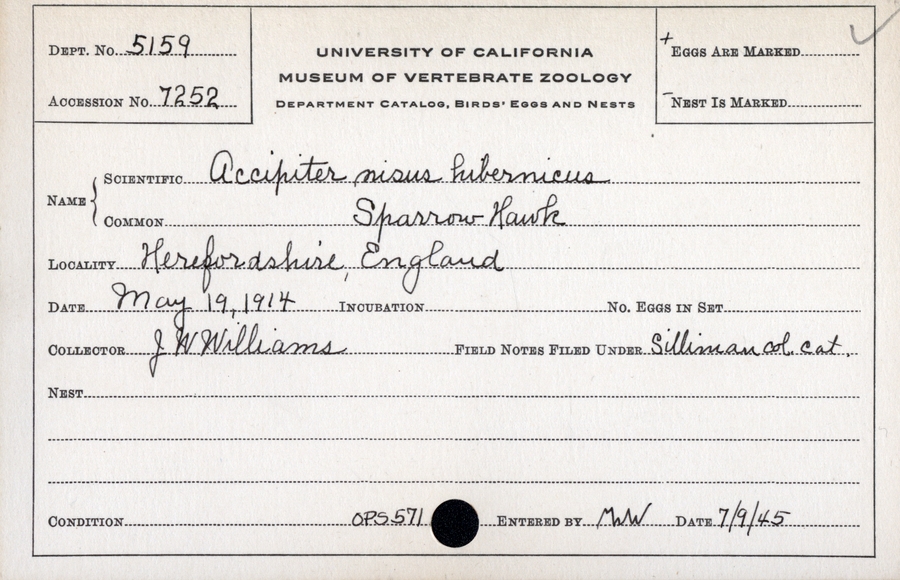 DEPT. No. 5159
ACCESSION No. 7252
UNIVERSITY OF CALIFORNIA
MUSEUM OF VERTEBRATE ZOOLOGY
DEPARTMENT CATALOG, BIRDS' EGGS AND NESTS
+ EGGS ARE MARKED
- NEST IS MARKED
NAME { SCIENTIFIC Accipiter nisus hibernicus
COMMON Sparrow Hawk
LOCALITY Herefordshire, England
DATE May 19, 1914 INCUBATION No. EGGS IN SET
COLLECTOR J W Williams FIELD NOTES FILED UNDER Silliman col. cat.
NEST
CONDITION OPS 571 ENTERED BY MWW DATE 7/9/45